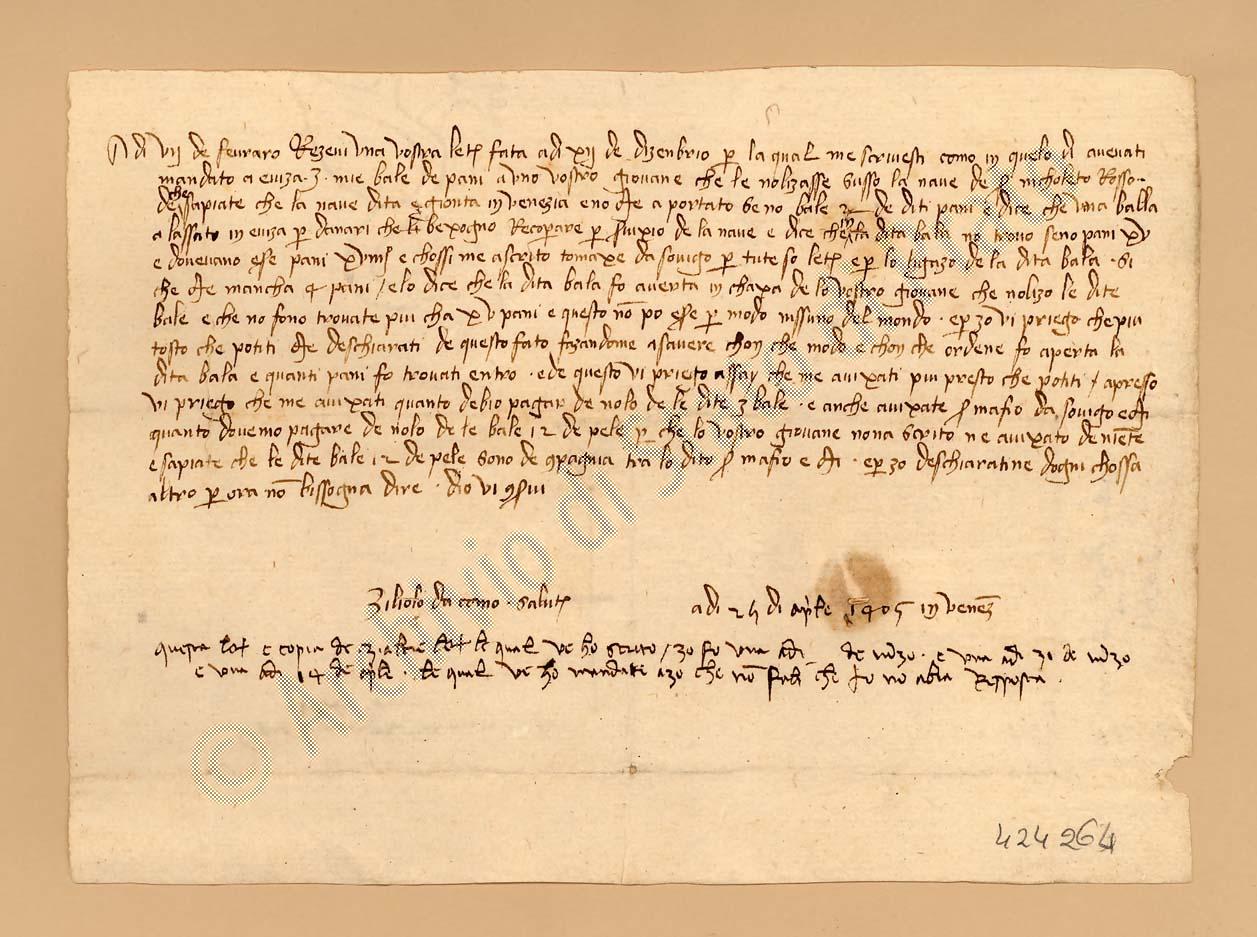 Adi vij de fevraro Rezevi una vostra letª fata adi xij de dizenbrio per la qual me scrivesti como in quelo di avevati
mandato a eviza 3 mie bale de pani a uno vostro giovane che le nolizasse susso la nave de ser nicholeto Rosso
de che sapiate che la nave dita e gionta in venezia e no me a portato se no bale 2 de diti pani e dice che una balla
a lassato in eviza per danari che li bexogno Recoperare per servixio de la nave e dice che in la dita bala no trovo seno pani xv
e dovevano esse pani xviiij e chossi me a scrito tomaxe da sovigo per tute so letª e per lo della dita bala si
che me mancha 4 pani / elo dice che la dita bala fo averta in chaxa de lo vostro giovane che nolizo le dite
bale e che no fono trovate piu cha xv pani e questo non po esse per modo nissuno del mondo e per zo vi priego che piu
tosto che potiti me deschiarati de questo fato fazandome asavere chon che modo e chon che ordene fo aperta la
dita bala e quanti pani fo trovati entro e de questo vi priego assay che me avixati piu presto che potiti / apresso
vi priego che me avixati quanto debio pagar de nolo de le dite 3 bale e anche avixate ser mafio da sovigo e mi
quanto dovemo pagare de nolo de le bale 12 de pele per che lo vostro giovane non a scrito ne avixato de niente
e sapiate che le dite bale 12 de pele sono de conpagnia tra lo dito ser mafio e mi e per zo deschiaratine dogni chossa
altro per ora non bissogna dire dio vi conservi
Ziliolo da como salutª
adi 24 di aprile 1405 in venexª
questa letª e copia de 3 altre letª le qual ve ho scrito / zo fo una adi de marzo e una adi 31 de marzo
e una adi 14 de aprile le qual ve ho mandate azo che non fali che io no abia Resposta
424264
© Archivio di